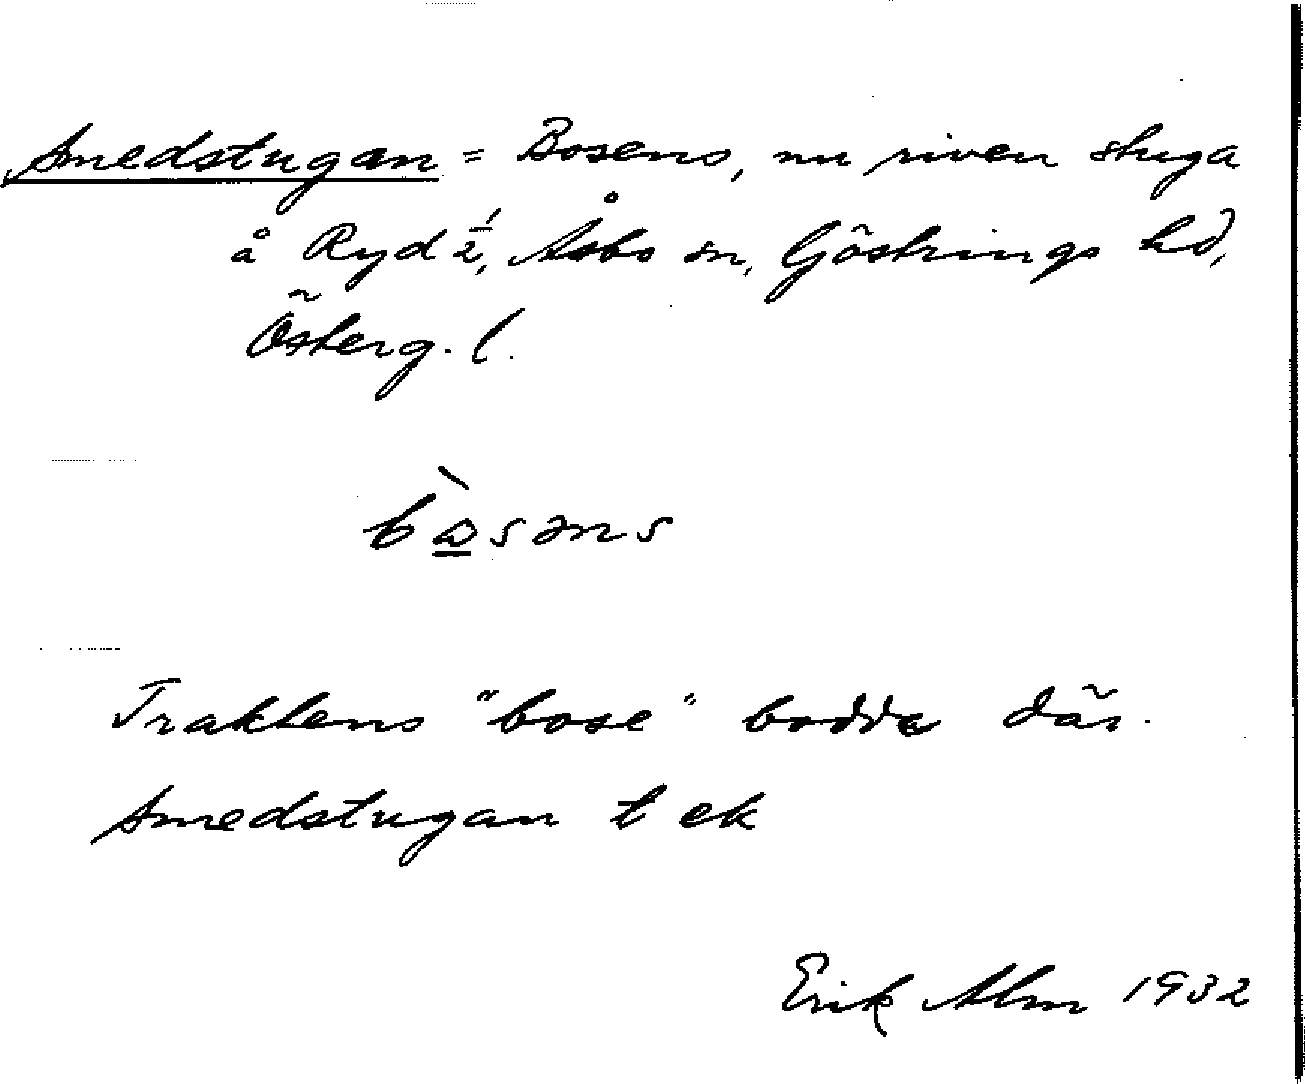 Smedstugan = Bosens, nu riven stuga
å Ryd 1/2, Åsbo sn, Göstrings hd,
Österg. l.
bò̲səns
Traktens "bose" bodde där.
Smedstugan t ek
Erik Alm 1932